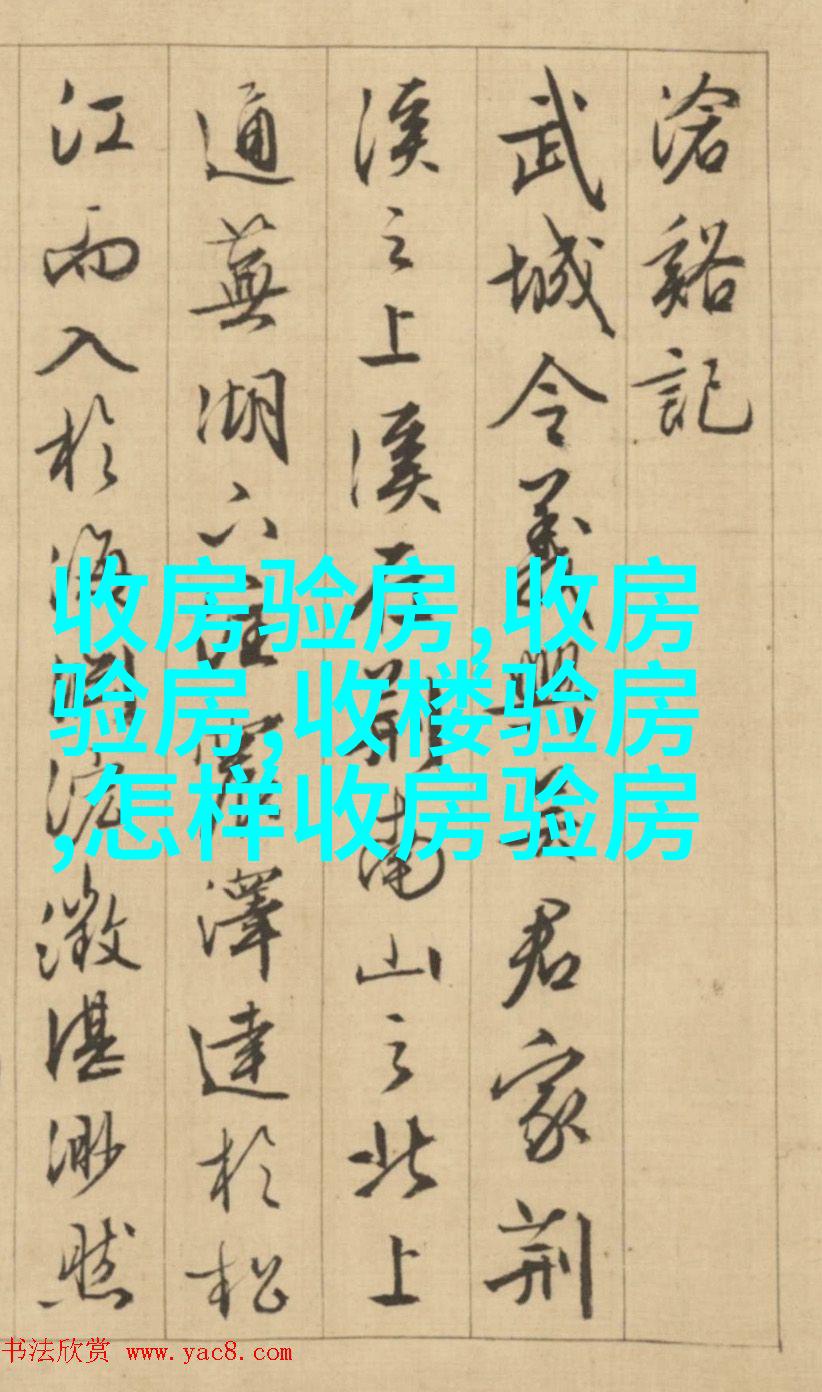 滄谿記
武城令義興吳君家荆
溪之上溪在荆南山之北上
通蕪湖下注震澤達於松
江而入於海
澂湛渺然
收房验房,收房
验房,收楼验房
,怎样收房验房
书法欣赏 www.yac8.com